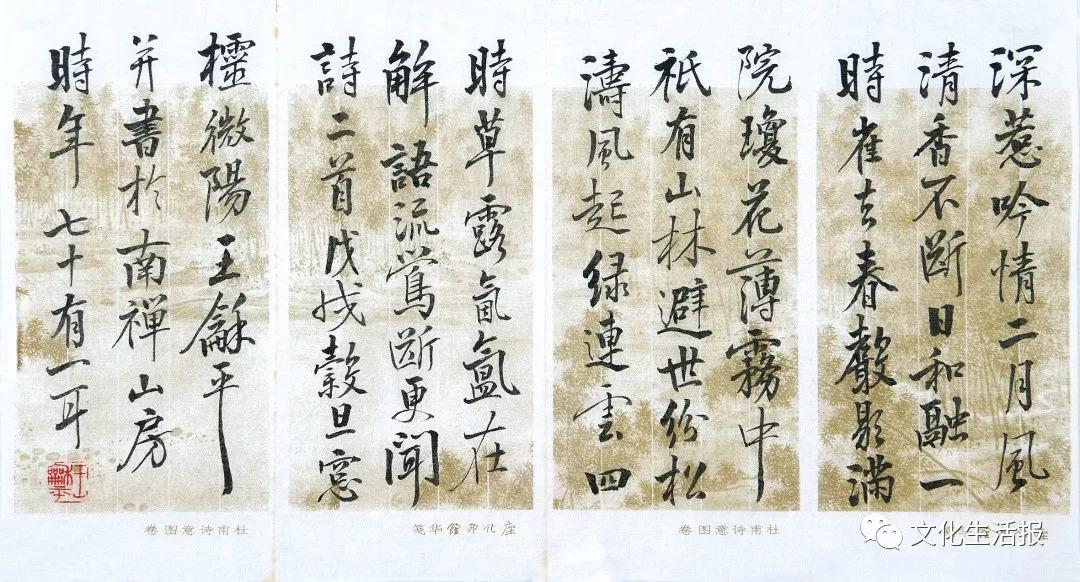 深惹吟情二月風
清香不斷日和融一
時雀去春聲影滿
院瓊花薄霧中
祇有山林避世紛松
濤風起緑連雲四
時草露氤氳在
解語流鶯斷更聞
詩二首戊戌穀旦窓
櫺微陽王龢平
并書於南禅山房
時年七十有一耳
杜甫诗意图卷
杜甫诗意图卷
文化生活报